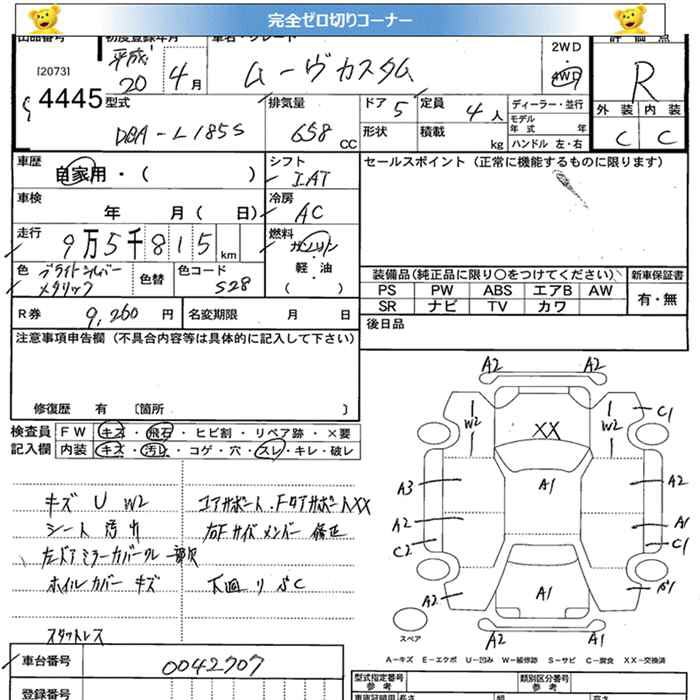 完全ゼロ切りコーナー
出品番号 初度登録年月 車名・グレード 評価点
[2073] 平成 20 4月 ムーヴカスタム 2WD 4WD R
4445 外装 内装
型式 排気量 ドア 5 定員 4人 ディーラー・並行 C C
DBA-L185S 658 CC 形状 積載 kg モデル年式 年
ハンドル 左・右
車歴 自家用・( ) シフト IAT セールスポイント(正常に機能するものに限ります)
車検 年 月( 日) 冷房 AC
走行 9万5千815km 燃料 ガソリン
軽・油
( )
色 ブライトシルバーメタリック 色替 色コード S28 装備品(純正品に限り○をつけてください) 新車保証書
PS PW ABS エアB AW 有・無
SR ナビ TV カワ
R券 9,260 円 名変期限 月 日 後日品
注意事項申告欄(不具合内容等は具体的に記入して下さい)
修復歴 有 〔箇所 〕
検査員記入欄 FW キズ・飛石・ヒビ割・リペア跡・×要
内装 キズ・汚れ・コゲ・穴・スレ・キレ・破レ
キズ U W2 コアサポート.FタアサポートXX
シート 汚れ 右Fサイドメンバー 修正
左ドアミラーカバークル 一部欠
ホイルカバー キズ 下廻りサビC
スタットレス
A2 A2
W2 XX W2 C1
A3 A1 A2
A2 A1
C2 C1
A2 A1
A2 A1
スペア
A-キズ E-エクボ U-凹み W-補修跡 S-サビ C-腐食 XX-交換済
車台番号 0042707
登録番号
型式指定番号 参考 類別区分番号 参考
車庫証明用 長さ 幅 高さ